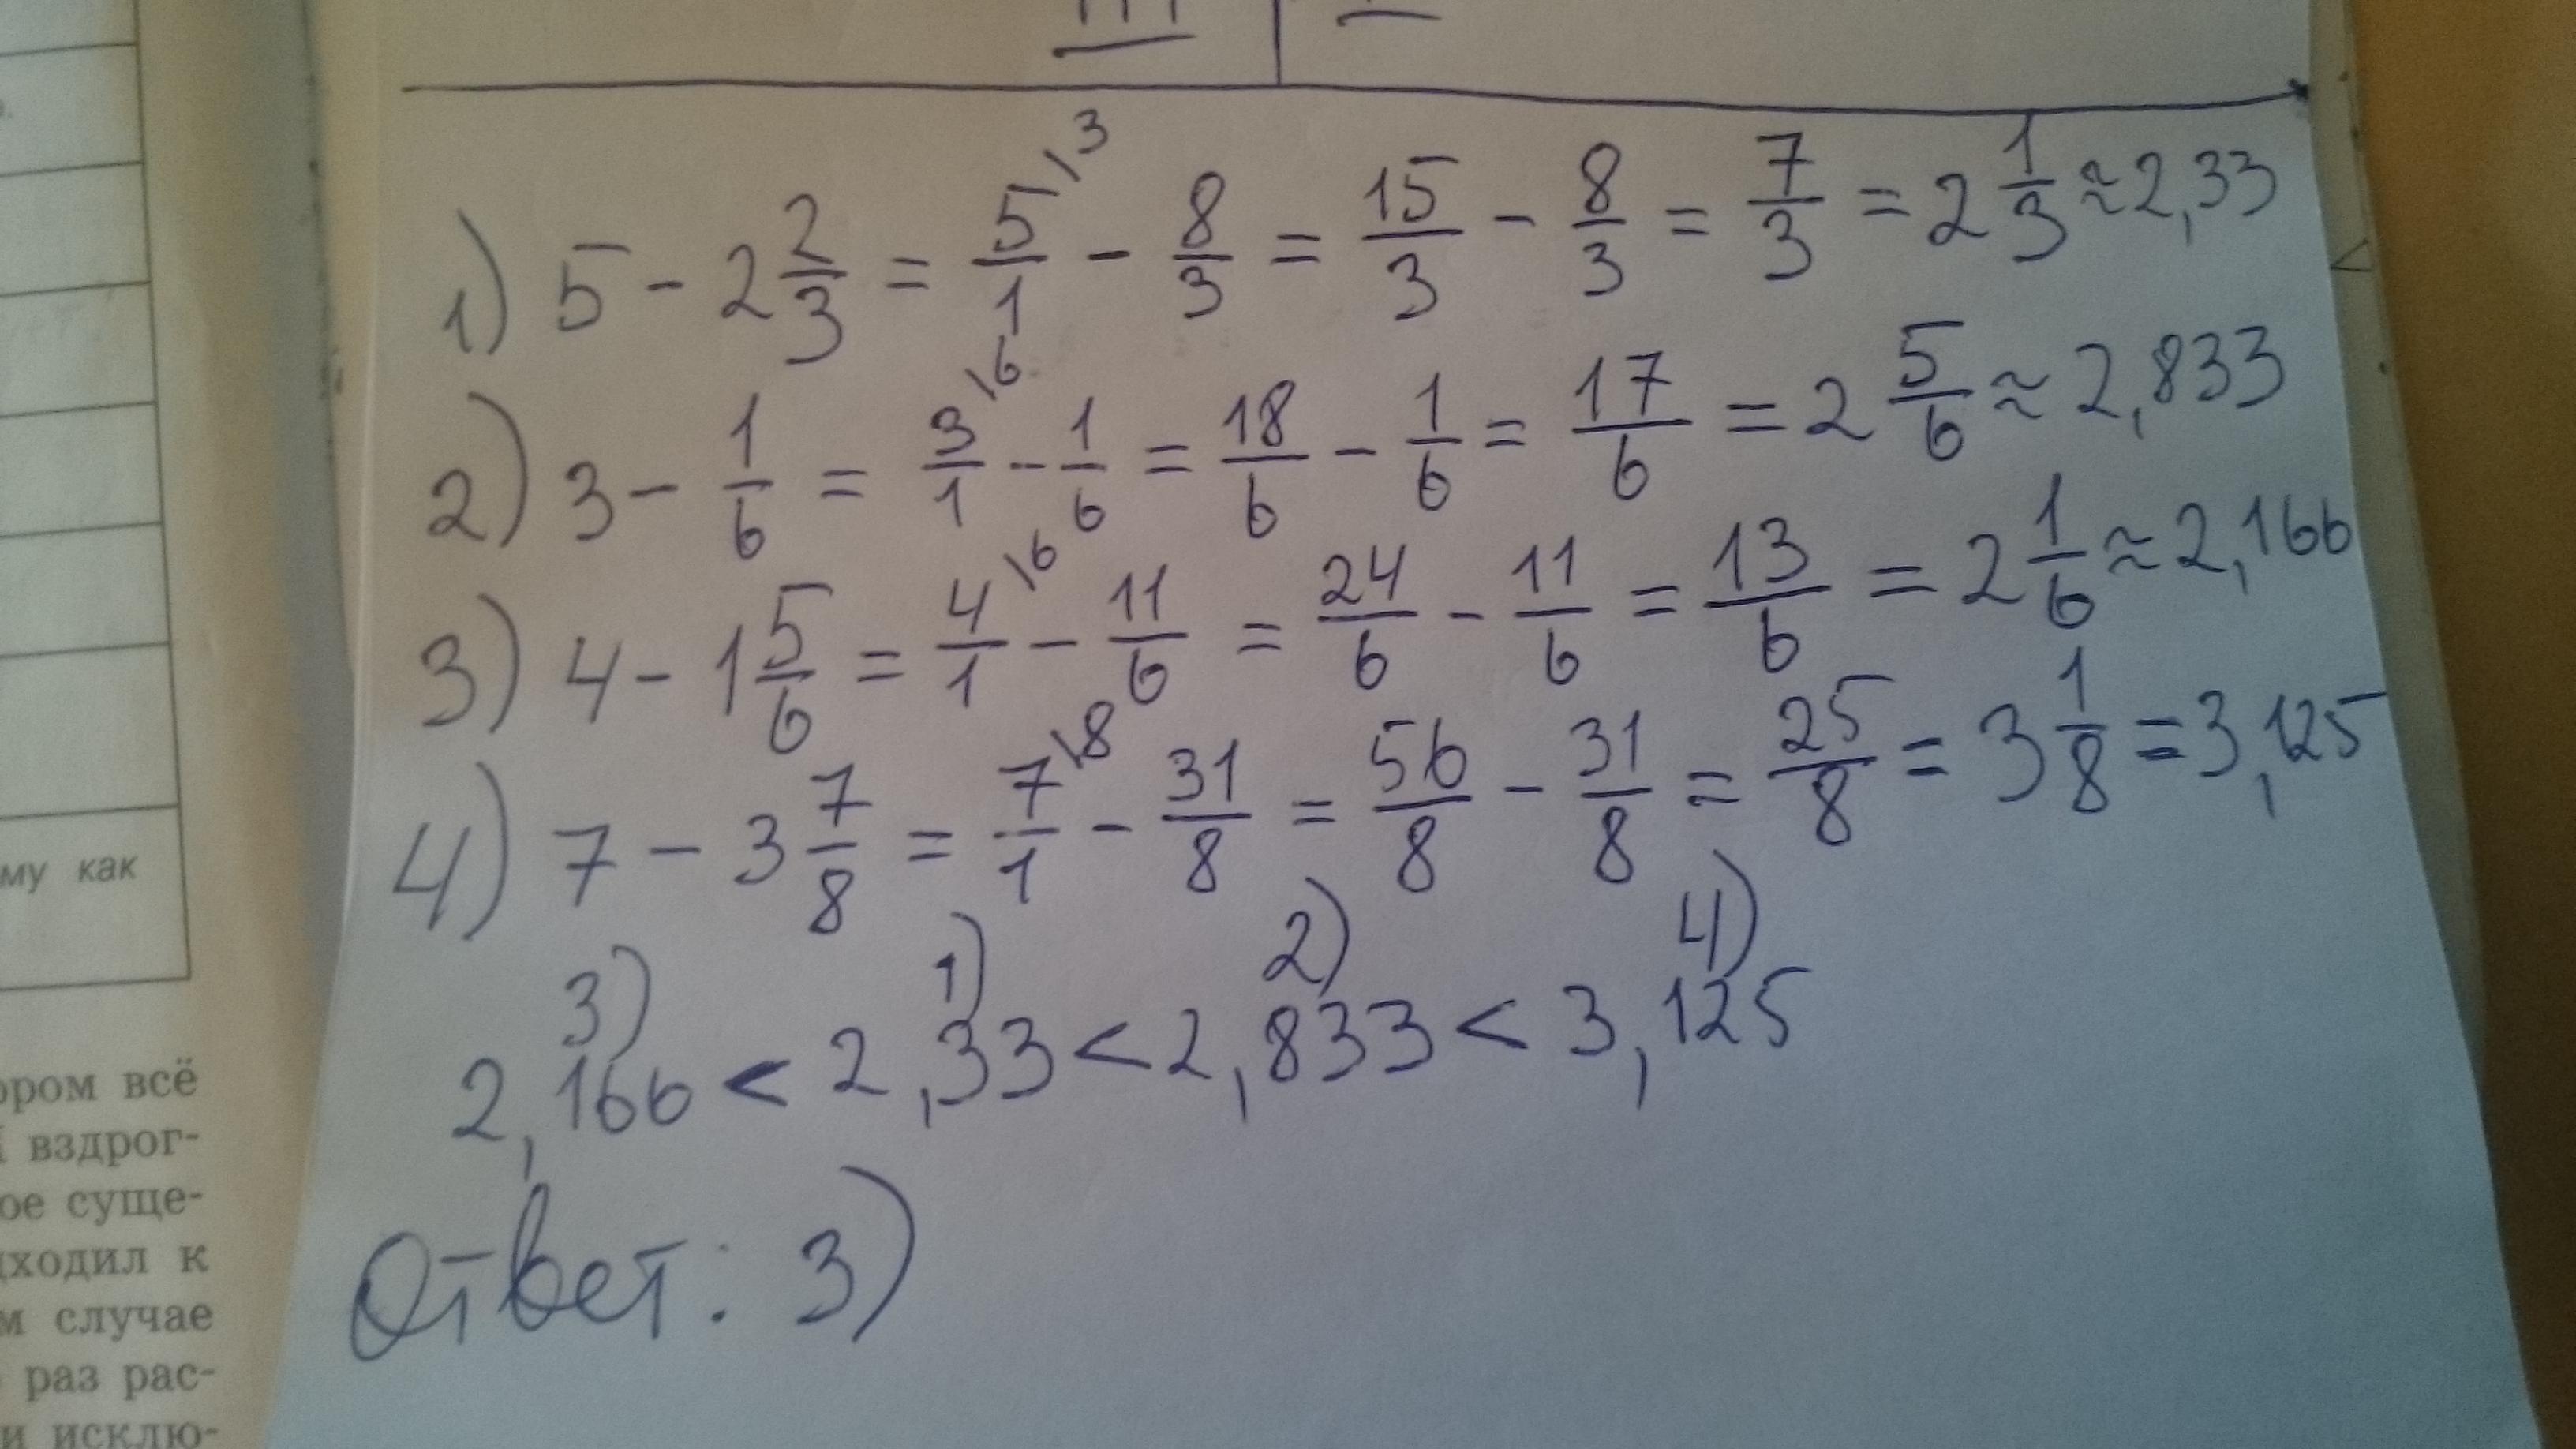 му как
ором всё
вздрог-
ое суще-
дходил к
м случае
раз рас-
и исклю-
1) 5 - 2 2/3 = 5/1 \3 - 8/3 = 15/3 - 8/3 = 7/3 = 2 1/3 ≈ 2,33
2) 3 - 1/6 = 3/1 \6 - 1/6 = 18/6 - 1/6 = 17/6 = 2 5/6 ≈ 2,833
3) 4 - 1 5/6 = 4/1 \6 - 11/6 = 24/6 - 11/6 = 13/6 = 2 1/6 ≈ 2,166
4) 7 - 3 7/8 = 7/1 \8 - 31/8 = 56/8 - 31/8 = 25/8 = 3 1/8 = 3,125
3) 1) 2) 4)
2,166 < 2,33 < 2,833 < 3,125
Ответ: 3)